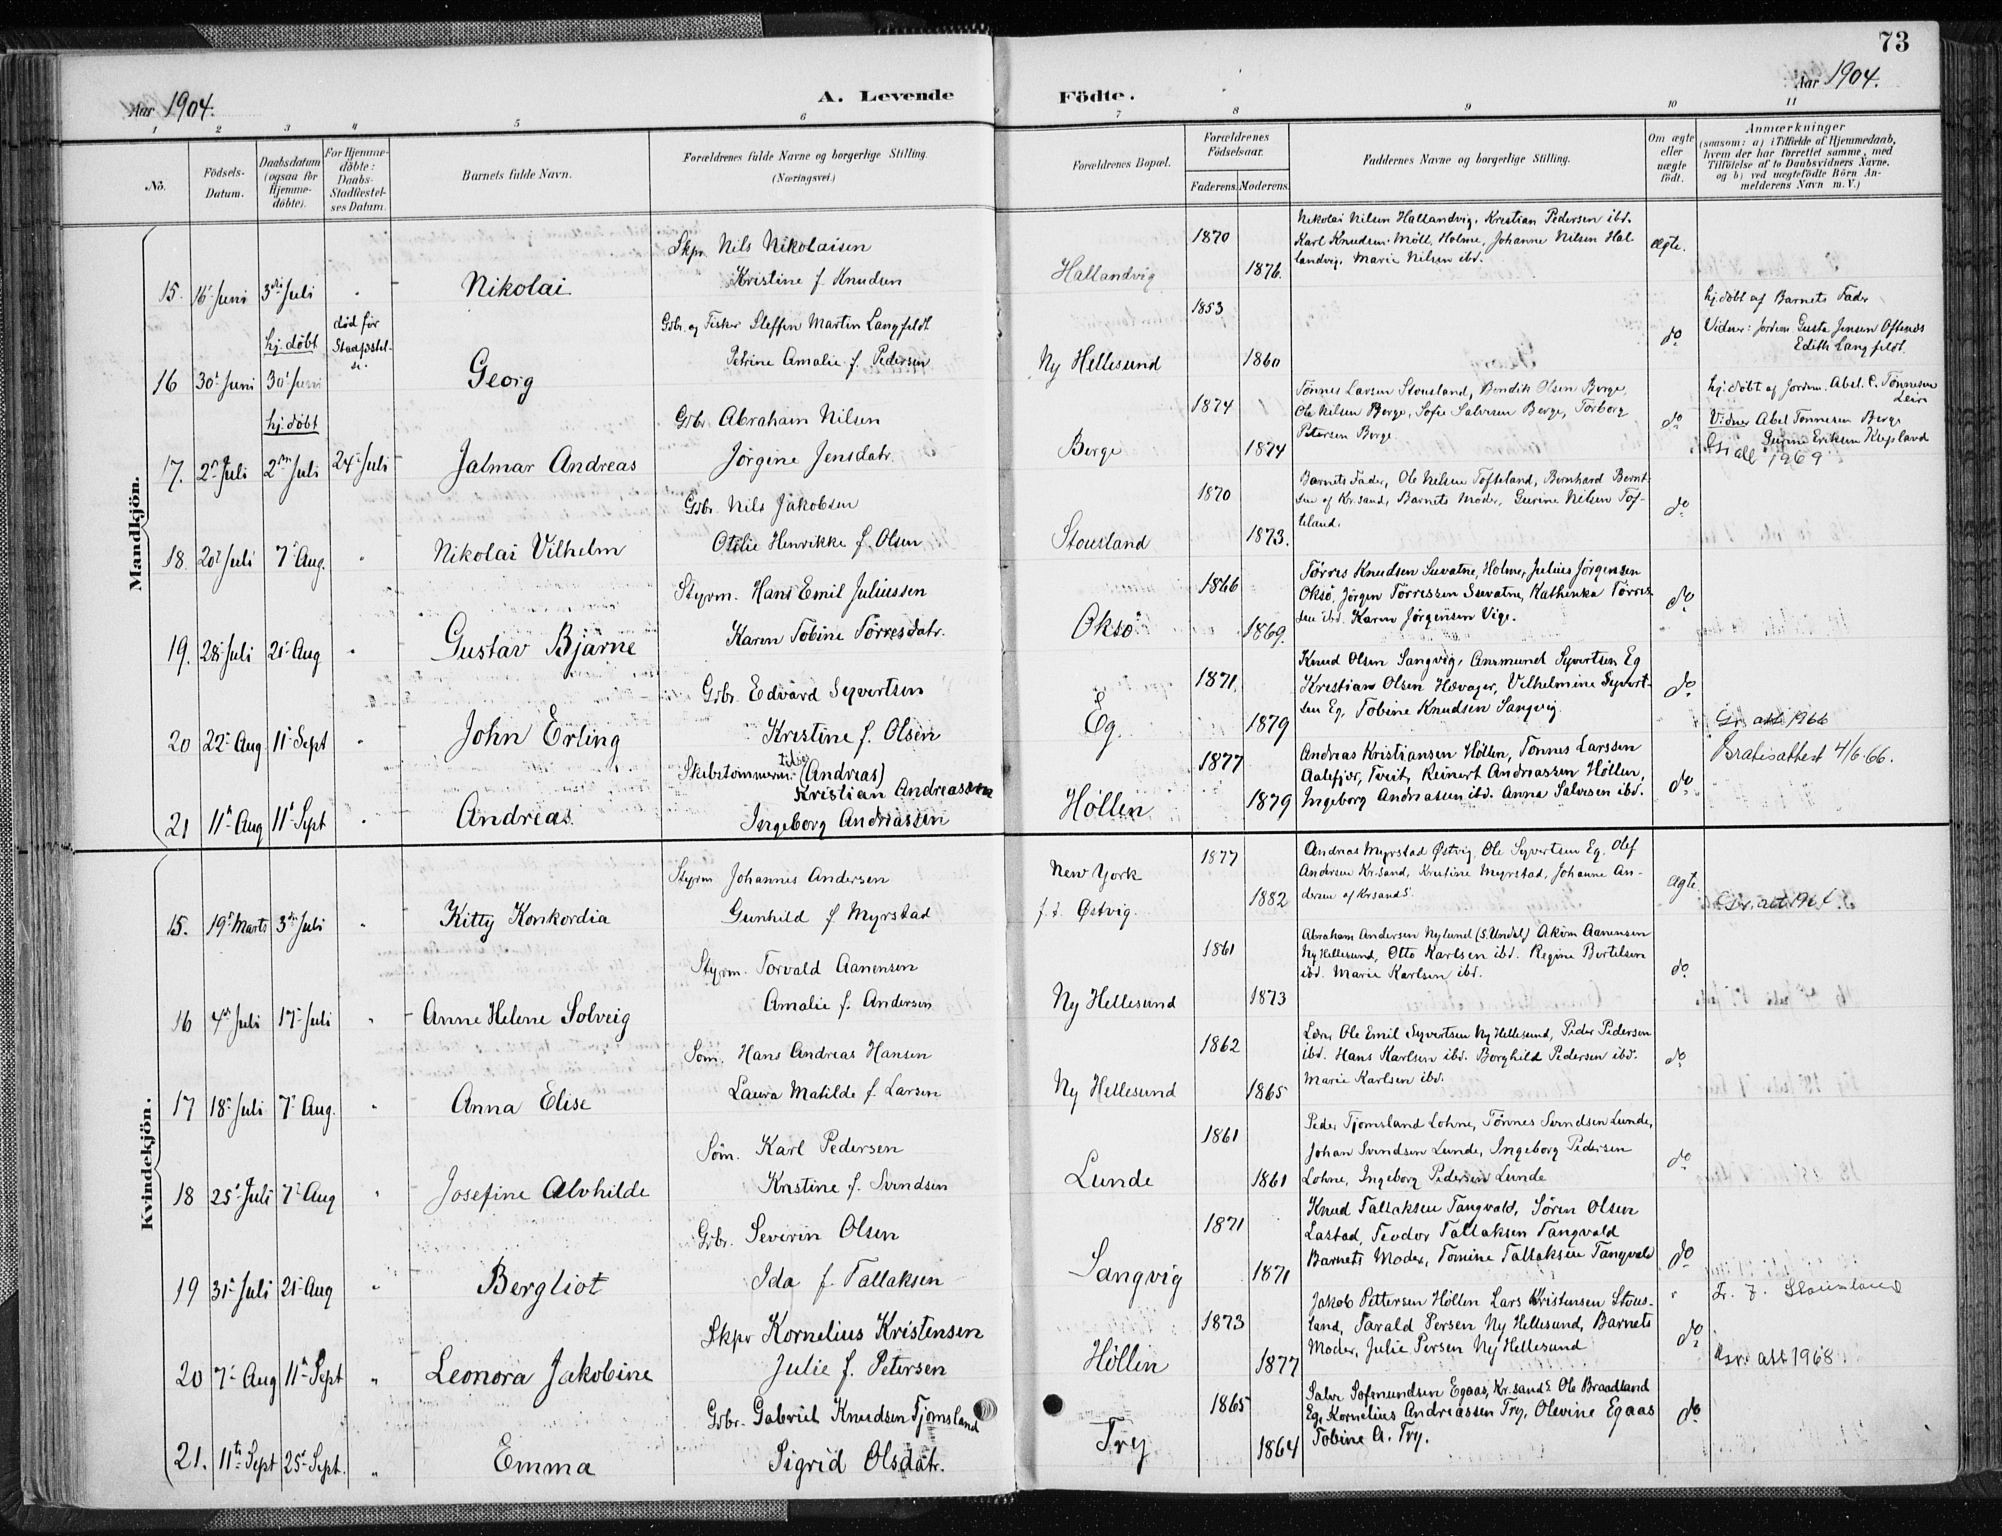 73
Aar 1904.
A. Levende Födte.
Aar 1904.
1 2 3 4 5 6 7 8 9 10 11
No.
Födsels-Datum.
Daabsdatum (ogsaa for Hjemme-döbte).
For Hjemme-döbte: Daabs-Stadfæstel-ses Datum.
Barnets fulde Navn.
Forældrenes fulde Navne og borgerlige Stilling.
(Næringsvei.)
Forældrenes Bopæl.
Forældrenes Födselsaar.
Faderens. Moderens.
Faddernes Navne og borgerlige Stilling.
Om ægte eller uægte födt.
Anmærkninger
(saasom: a) i Tilfælde af Hjemmedaab,
hvem der har forrettet samme, med
Tilföielse af to Daabsvidners Navne.
og b) ved uægtefödte Börn An-
melderens Navn m. V.)
Mandkjön.
15. 16 Juni 3die Juli - Nikolai
Skpr. Nils Nikolaisen
Kristine f. Knudsen
Hallandvig 1870 1876.
Nikolai Nilsen Hallandvig, Kristian Pedersen ibd.
Karl Knudsen Möll, Holme, Johanne Nilsen Hal
landvig, Marie Nilsen ibd.
Ægte.
16 30 Juni hj. döbt 30 Juni død før Stadfæstel-se. Georg
Gbr. og Fisker Steffen Martin Langfeldt
Petrine Amalie f. Pedersen
Ny Hellesund 1853 1860
do
hj. döbt af Barnets Fader
Vidner: Jordem. Gusta Jensen Oftenes
Edith Langfeldt.
17. 2 Juli hj. döbt 2 Juli 24 Juli Jalmar Andreas
Gbr. Abraham Nilsen
Jörgine Jensdatr.
Berge 1874 1874
Tönnes Larsen Stousland, Bendik Olsen Berge,
Ole Nilsen Berge, Sofie Salvesen Berge, Torborg
Petersen Berge
do
hj. döbt af Jordem. Abel C. Tönnesen
Leire
Vidner Abel Tönnesen Berge
Gurine Eriksen Kleplund
1969
18. 20 Juli 7 Aug. Nikolai Vilhelm
Gbr. Nils Jakobsen
Otilie Henrikke f. Olsen
Stousland 1870 1873.
Barnets Fader, Ole Nilsen Tofteland, Bernhard Bernt-
sen af Kr.sand, Barnets Moder, Gurine Nilsen Tof-
teland.
do
19. 28 Juli 21 Aug Gustav Bjarne
Styrm. Hans Emil Juliussen
Karen Tobine Törresdatr.
Oksö 1866 1869.
Törres Knudsen Suvatne, Holme, Julius Jörgensen
Oksö, Jörgen Törressen Suvatne, Kathinka Törres
sen ibd. Karen Jörgensen Vige.
do
20 22 Aug 11 Sept John Erling
Gbr. Edvard Syvertsen
Kristine f. Olsen
Eg. 1871. 1879
Knud Olsen Sangvig, Aasmund Syvertsen Eg
Kristian Olsen Hævager, Vilhelmine Syvert-
sen Eg, Tobine Knudsen Sangvig
do
Gr. att 1966
21 11 Aug 11 Sept Andreas
Skibstömmerm. (Andreas)
Kristian Andreassen
Ingeborg Andreassen
Höllen 1877 1879
Andreas Kristiansen Höllen, Tönnes Larssen
Aalefjær, Tveit, Reinert Andreassen Höllen,
Ingeborg Andreasen ibd. Anna Salvesen ibd.
do
4/6.66.
Kvindekjön.
15. 19 Marts 3die Juli Kitty Konkordia
Styrm Johannes Andersen
Gunhild f. Myrstad
New York
f. t. Östvig. 1877 1882
Andreas Myrstad Østvig, Ole Syvertsen Eg. Olef
Andersen Kr.sand, Kristine Myrstad, Johanne An-
dersen af Krsand S.
Ægte.
16 4 Juli 17 Juli Anne Helene Solveig
Styrm. Torvald Aanensen
Amalie f. Andersen
Ny Hellesund 1861 1873
Abraham Andersen Nylund (S. Undal) Akim Aanensen
Ny Hellesund, Otto Karlsen ibd. Regine Bertelsen
ibd. Marie Karlsen ibd.
do
17 18 Juli 7 Aug. Anna Elise
Söm. Hans Andreas Hansen
Laura Matilde f. Larsen
Ny Hellesund 1862 1865
Lærer Ole Emil Syvertsen Ny Hellesund, Peder Pedersen
ibd. Hans Karlsen ibd. Borghild Pedersen ibd.
Marie Karlsen ibd.
do
18 25 Juli 7 Aug Josefine Alvhilde
Söm. Karl Pedersen
Kristine f. Svendsen
Lunde 1861 1861
Peder Tjomsland Lohne, Tönnes Svendsen Lunde,
Johan Svendsen Lunde, Ingeborg Pedersen
Lohne, Ingeborg Pedersen Lunde
do
19 31 Juli 21 Aug Bergliot
Gbr. Severin Olsen
Ida f. Tallaksen
Sangvig 1871 1871
Knud Tallaksen Tangvald, Sören Olsen
Lastad, Teodor Tallaksen Tangvald
Barnets Moder, Tomine Tallaksen Tangvald
do
20 7 Aug 11 Sept Leonora Jakobine
Skpr Kornelius Kristensen
Julie f. Petersen
Höllen 1873 1877
Jakob Pettersen Höllen Lars Kristensen Stous-
land, Tarald Persen Ny Hellesund, Barnets
Moder, Julie Persen Ny Hellesund
do
Gr. att 1968
21. 11te Sept 25 Sept. Emma
Gbr. Gabriel Knudsen Tjomsland
Sigrid Olsdatr.
Try 1865 1864
Salve Sofmundsen Egaas, Kr.sand S. Ole Braadland
Eg, Kornelius Andreassen Try, Olevine Egaas
Tobine A. Try.
do